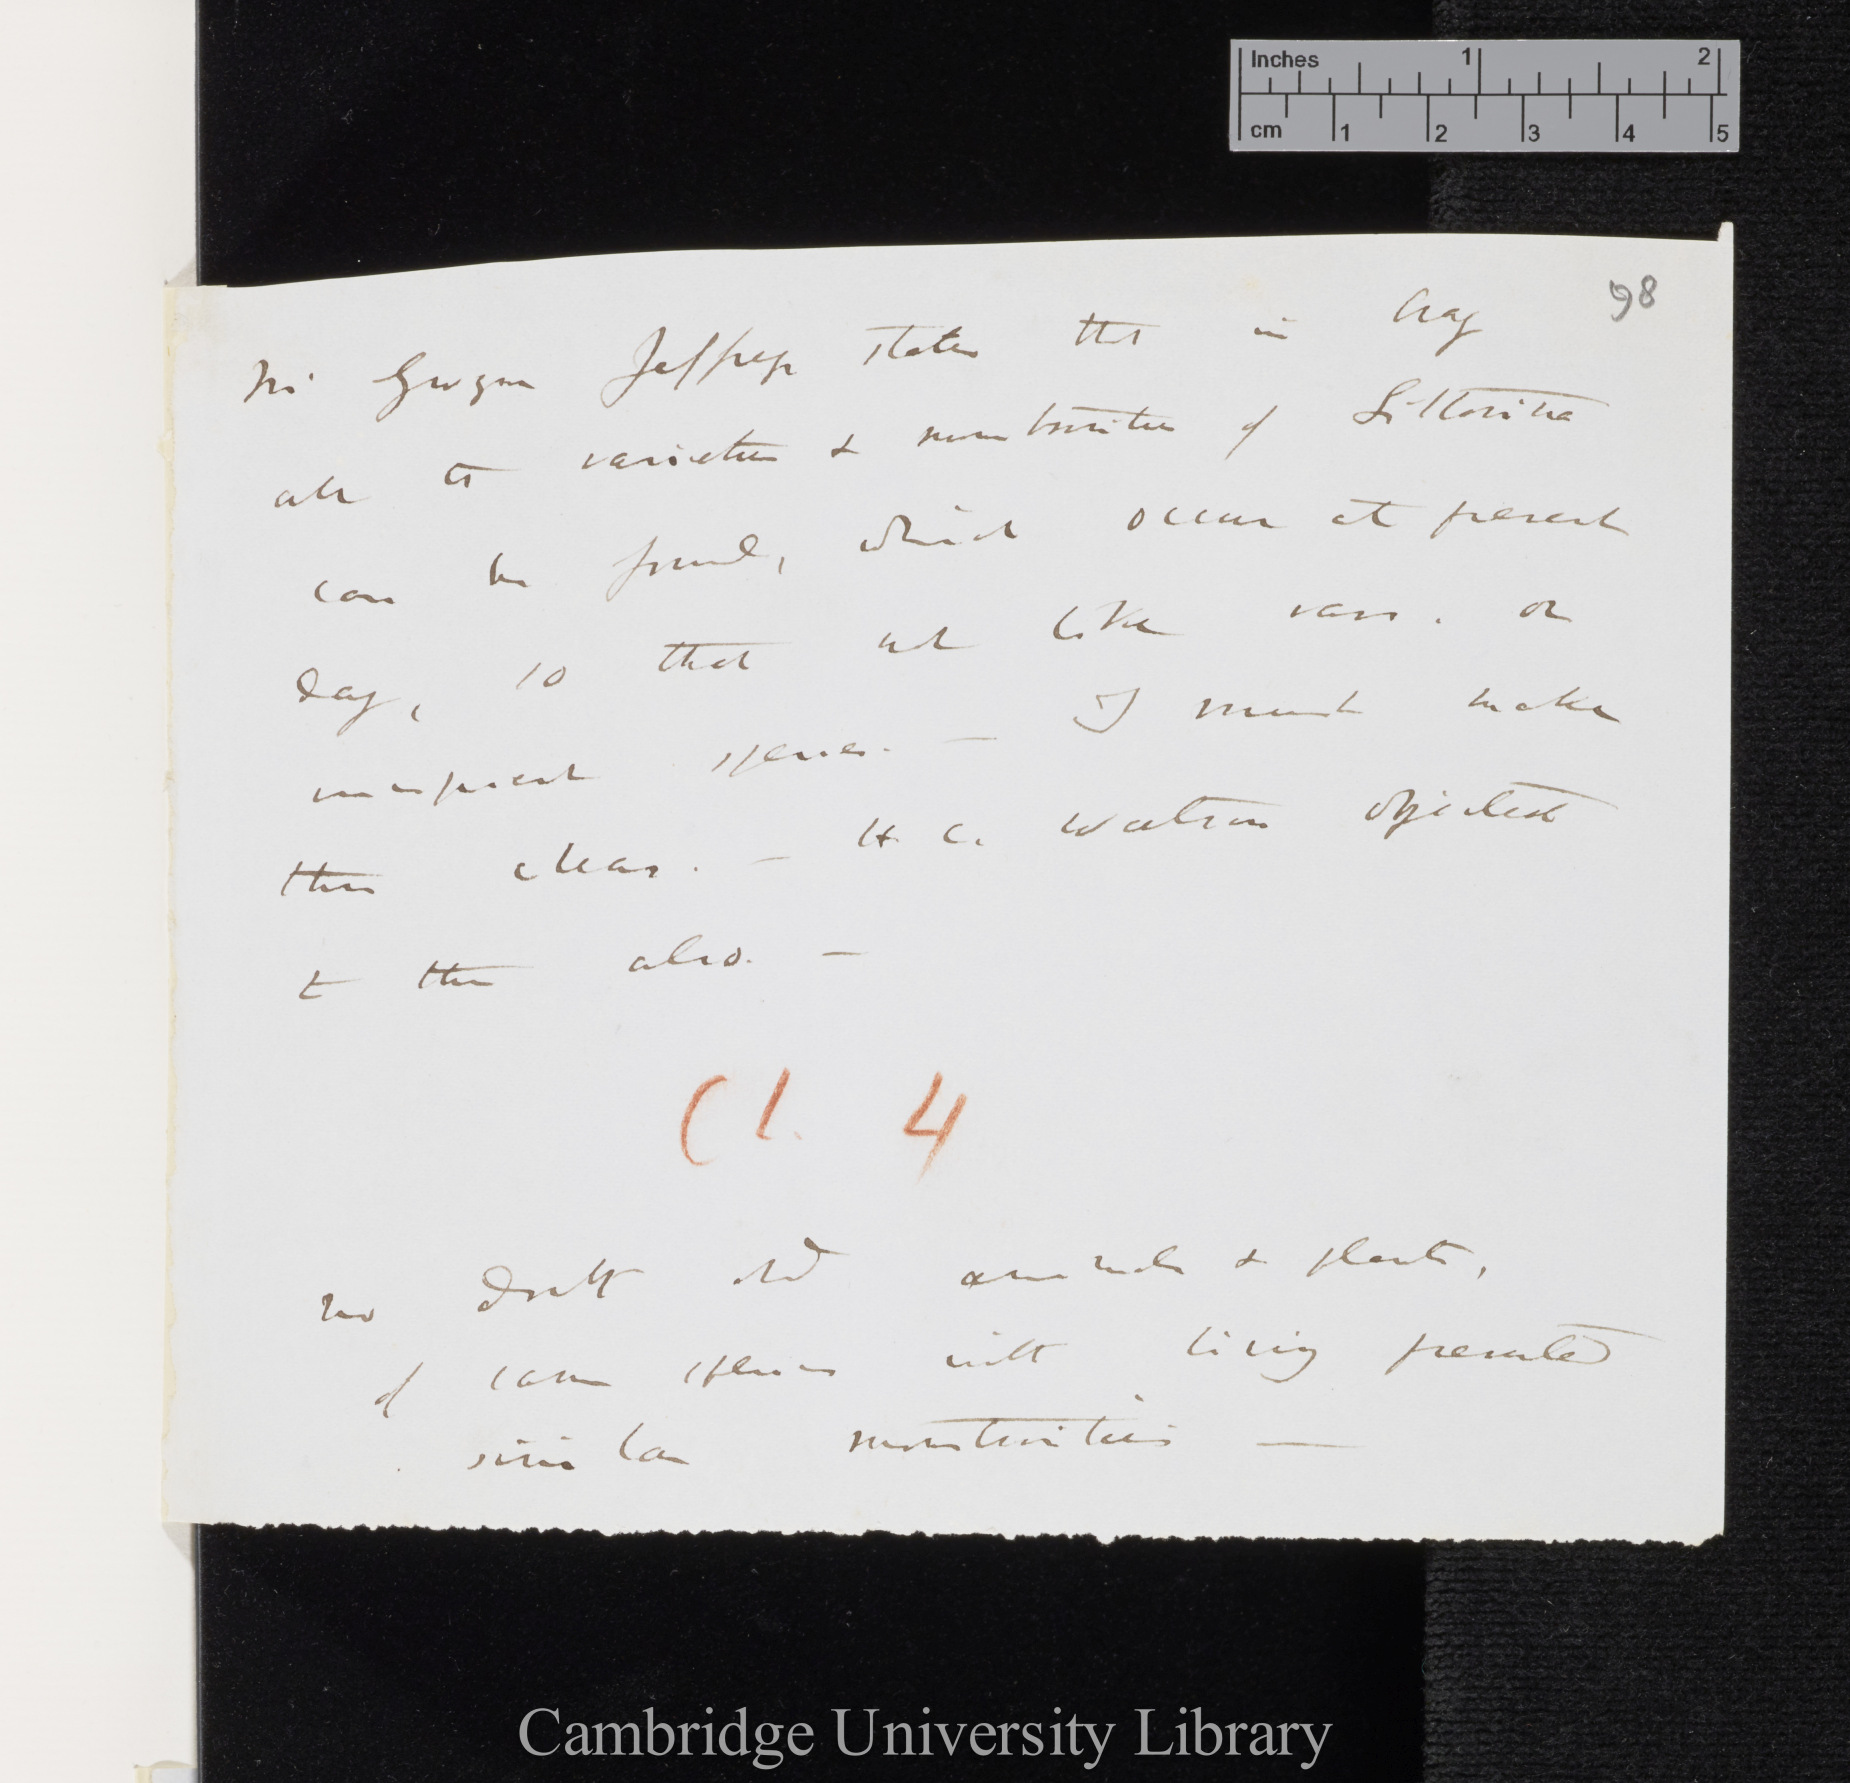 Inches 1 2
cm 1 2 3 4 5
98
Mr Gwyn Jeffreys states that in Crag
all the varieties & monstrosities of Littorina
can be found, which occur at present
day, so that not like vars. or
incipient species. — I must make
this clear. — H. C. Watson objected
to this also. —
Ch. 4
No doubt old animals & plants,
of same species with living presented
similar monstrosities —
Cambridge University Library